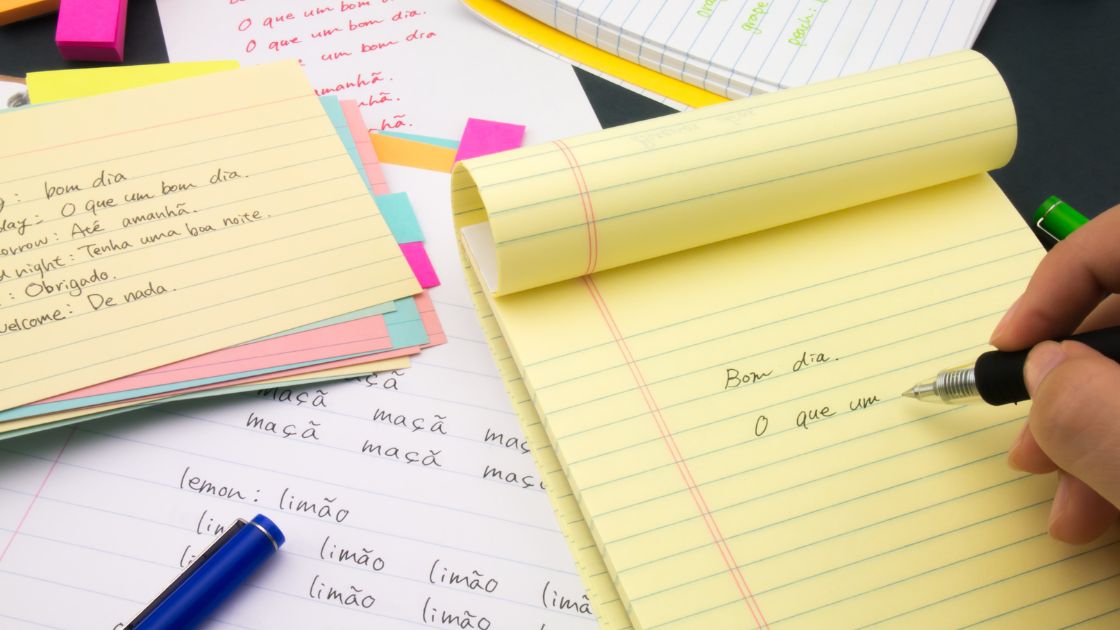 O que um bom
O que um bom dia.
um bom dia
amanhã.
grape
peach:
bom dia
O que um bom dia.
Até amanhã.
night: Tenha uma boa noite.
: Obrigado.
welcome: De nada.
maçã maçã
maçã maçã
lemon: limão
limão limão
limão limão
Bom dia.
O que um